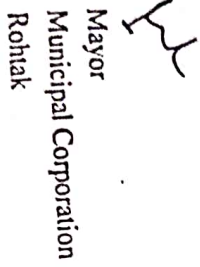 Mayor
Municipal Corporation
Rohtak